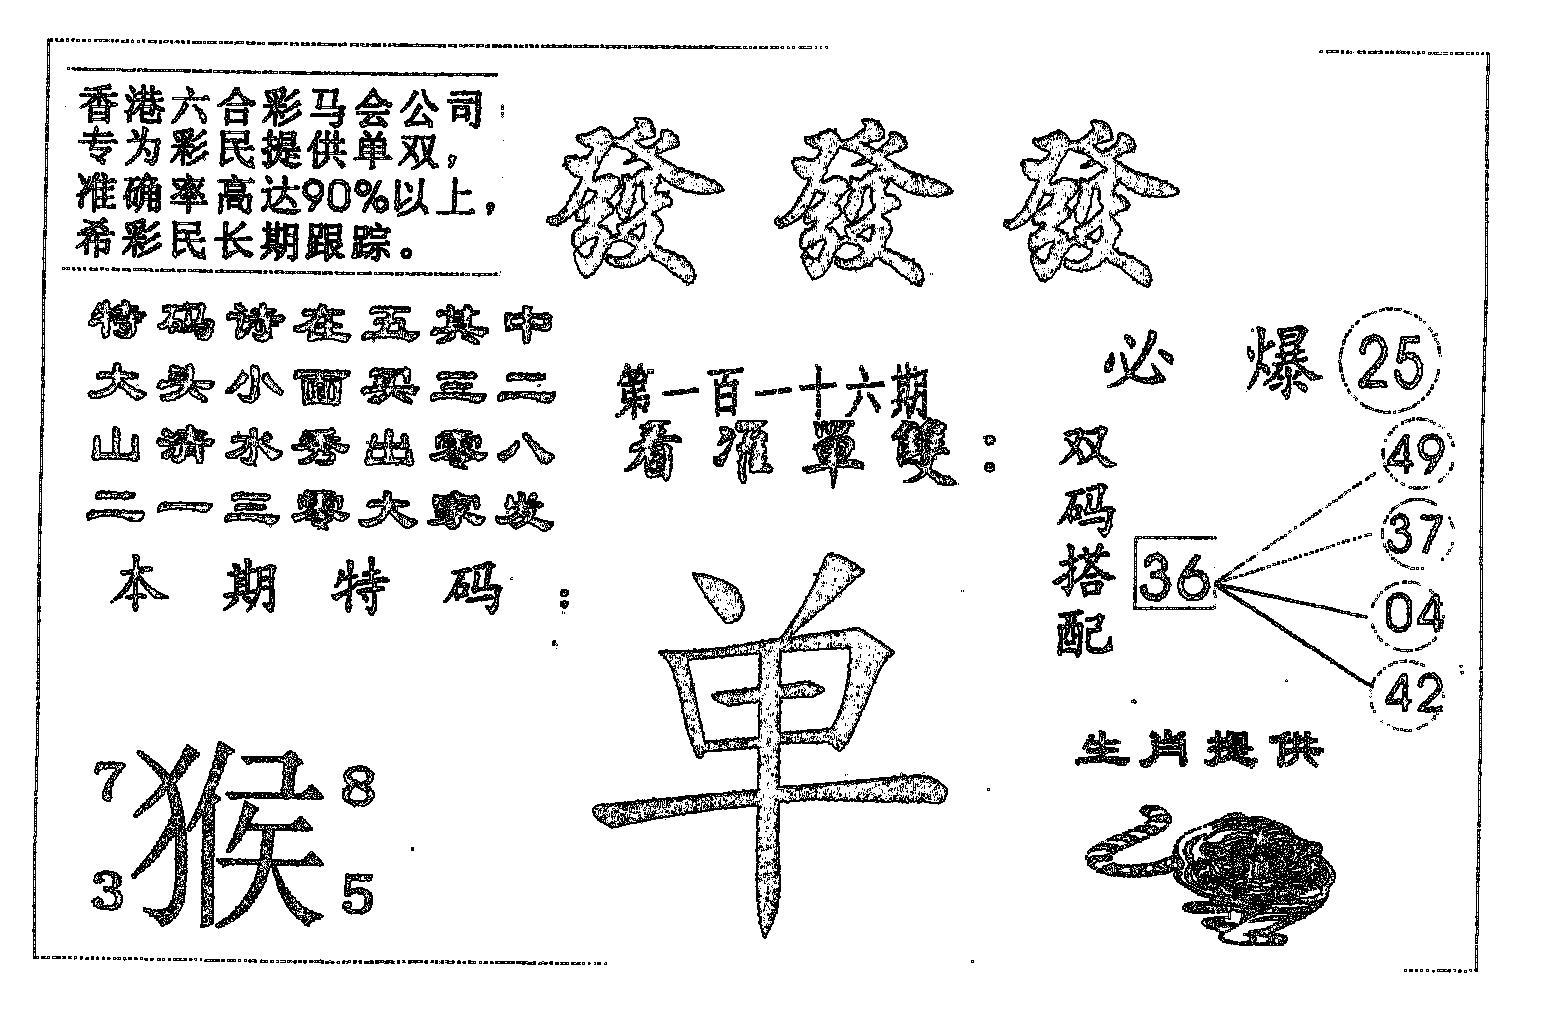 香港六合彩马会公司
专为彩民提供单双，
准确率高达90%以上，
希彩民长期跟踪。
發發發
特码诗在五其中
大头小面买三二
山清水秀出零八
二一三零大家发
本期特码：
7 8
猴
3 5
第一百一十六期
看准單雙：
单
必爆25
双码搭配
36
49
37
04
42
生肖提供